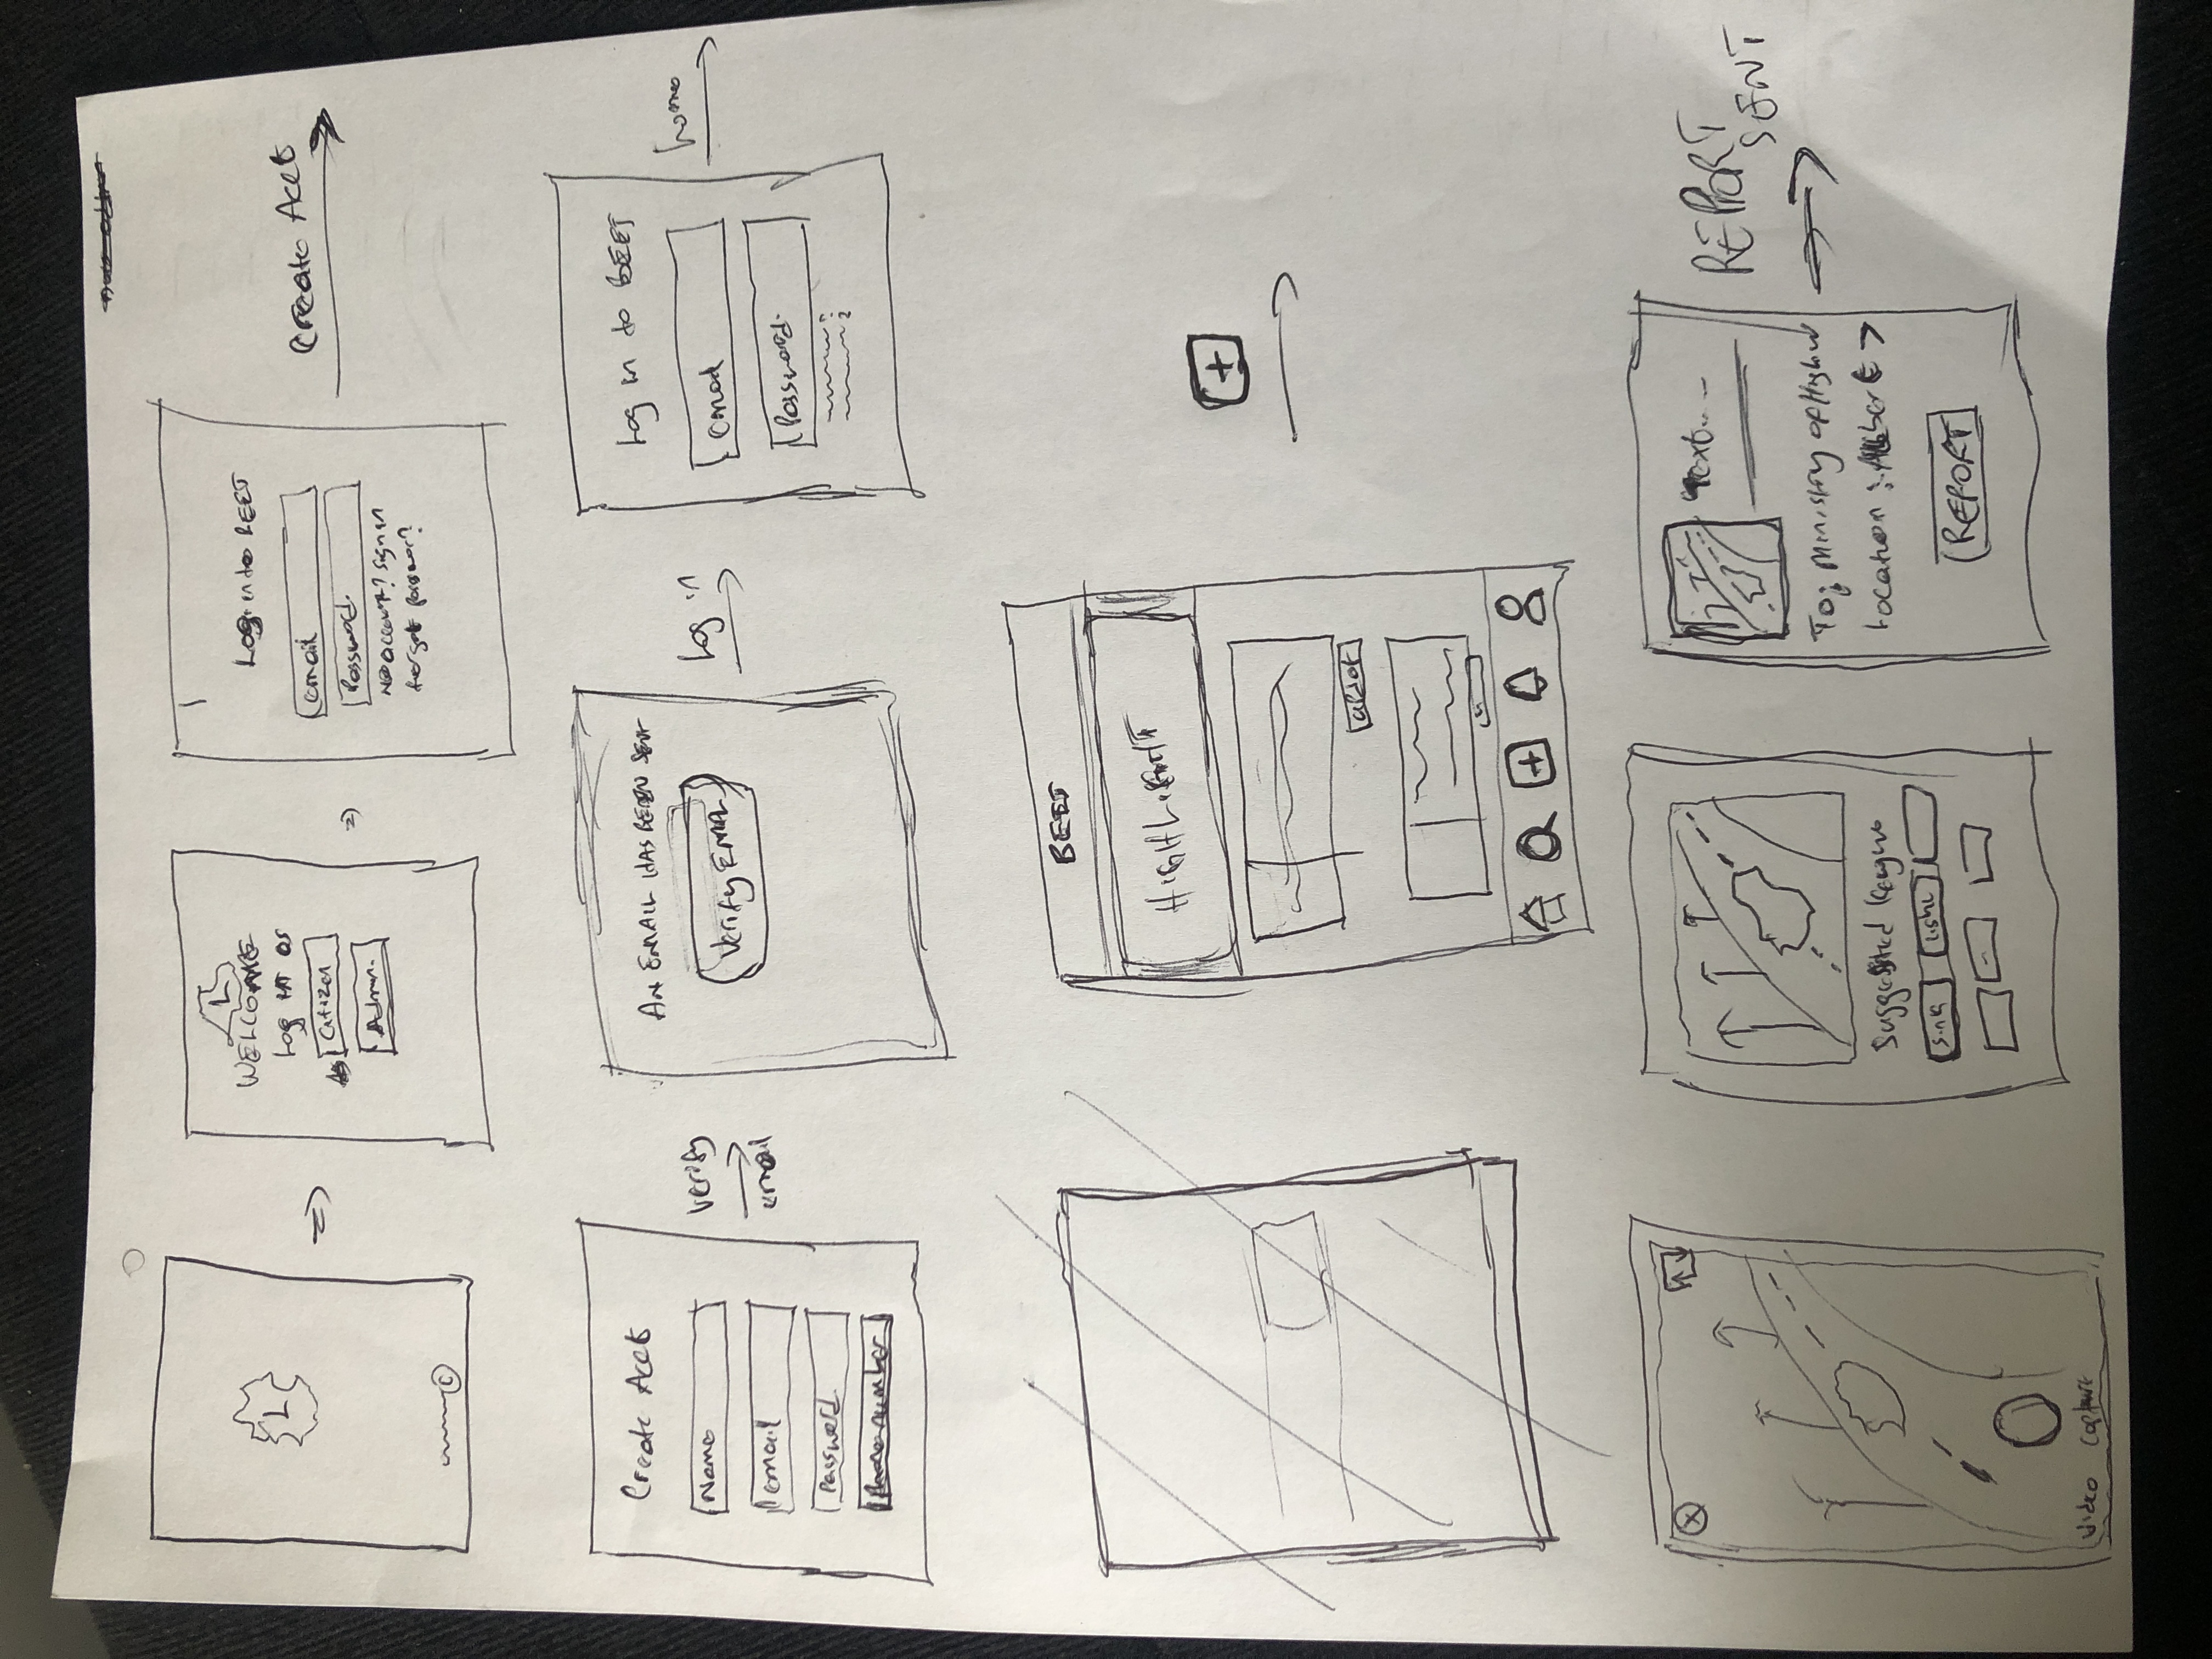 L
©
L
WELCOME
Log in as
Citizen
Admin.
Log into BEET
email
Password.
No account? Sign in
forgot password?
Create Acct
Create Acct
Name
email
Password.
Phone number
verify
email
AN EMAIL HAS BEEN SENT
Verify EMAIL
Log in
Log in to BEET
email
Password.
home
BEET
HIGHLIGHT
+
+
Video Capture
Suggested
sink
light
Text....
To: Ministry of
Location :
REPORT
REPORT
SENT